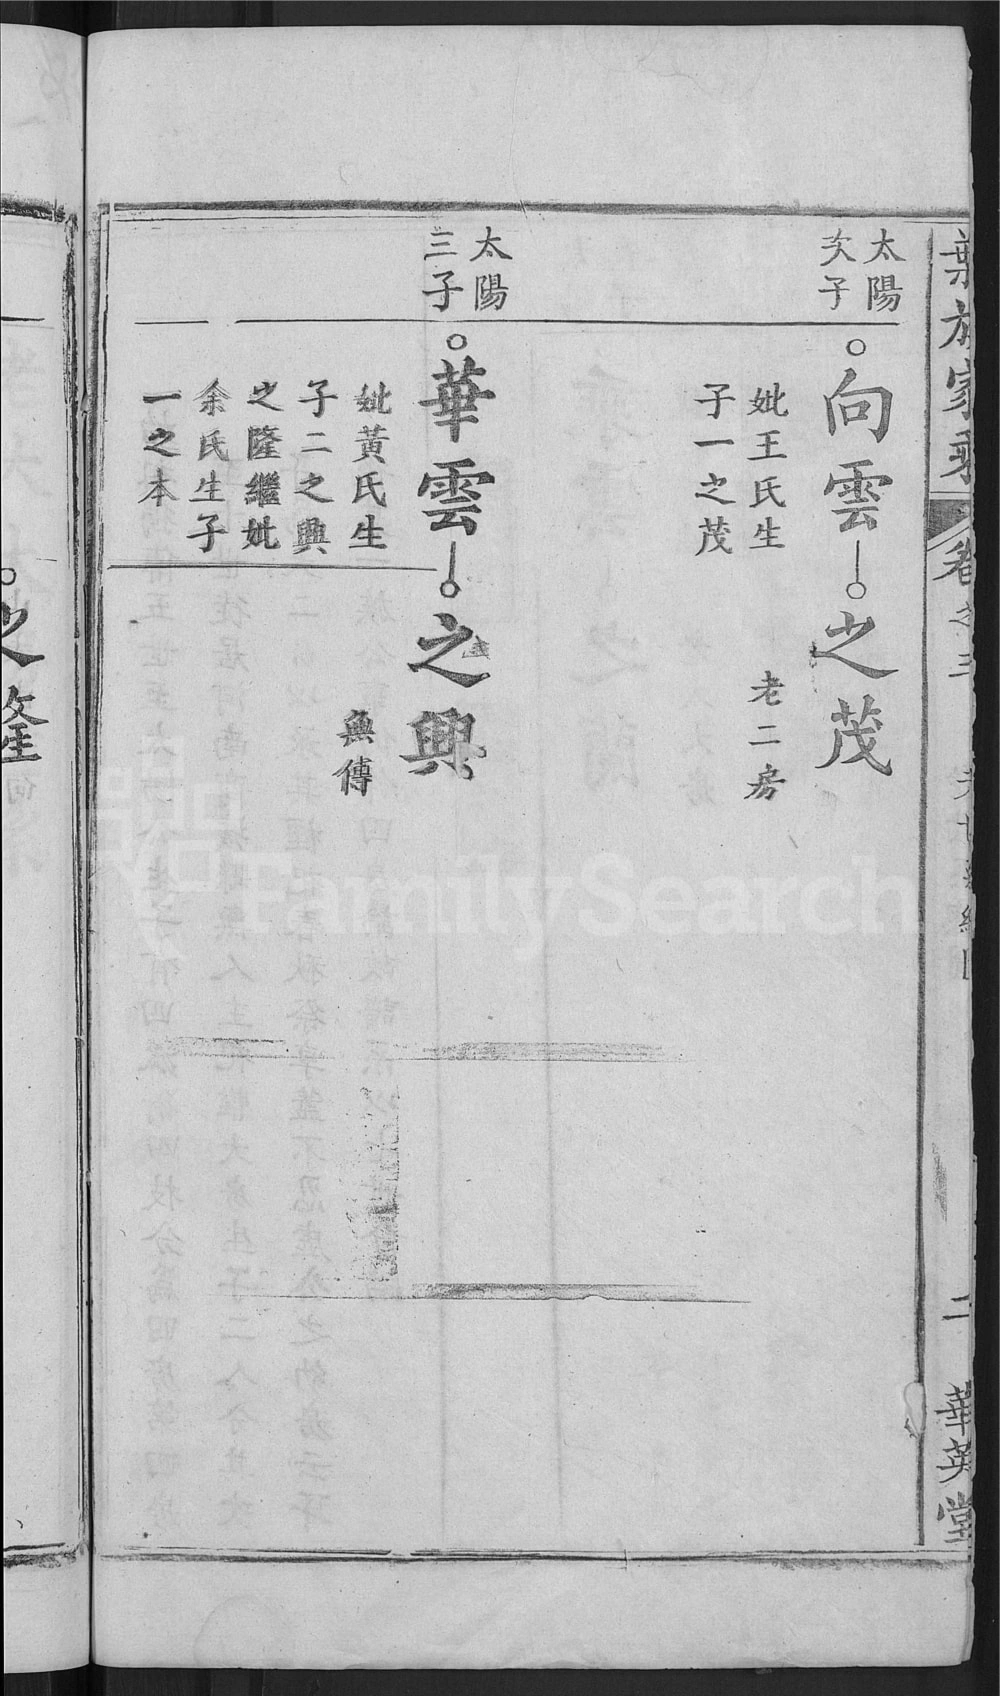 葉族家乘
卷之三
二
華英堂
太陽
次子
向雲
之茂
妣王氏生
子一之茂
老二房
太陽
三子
華雲
之興
妣黃氏生
子二之興
之隆繼妣
余氏生子
一之本
無傳
之隆
FamilySearch